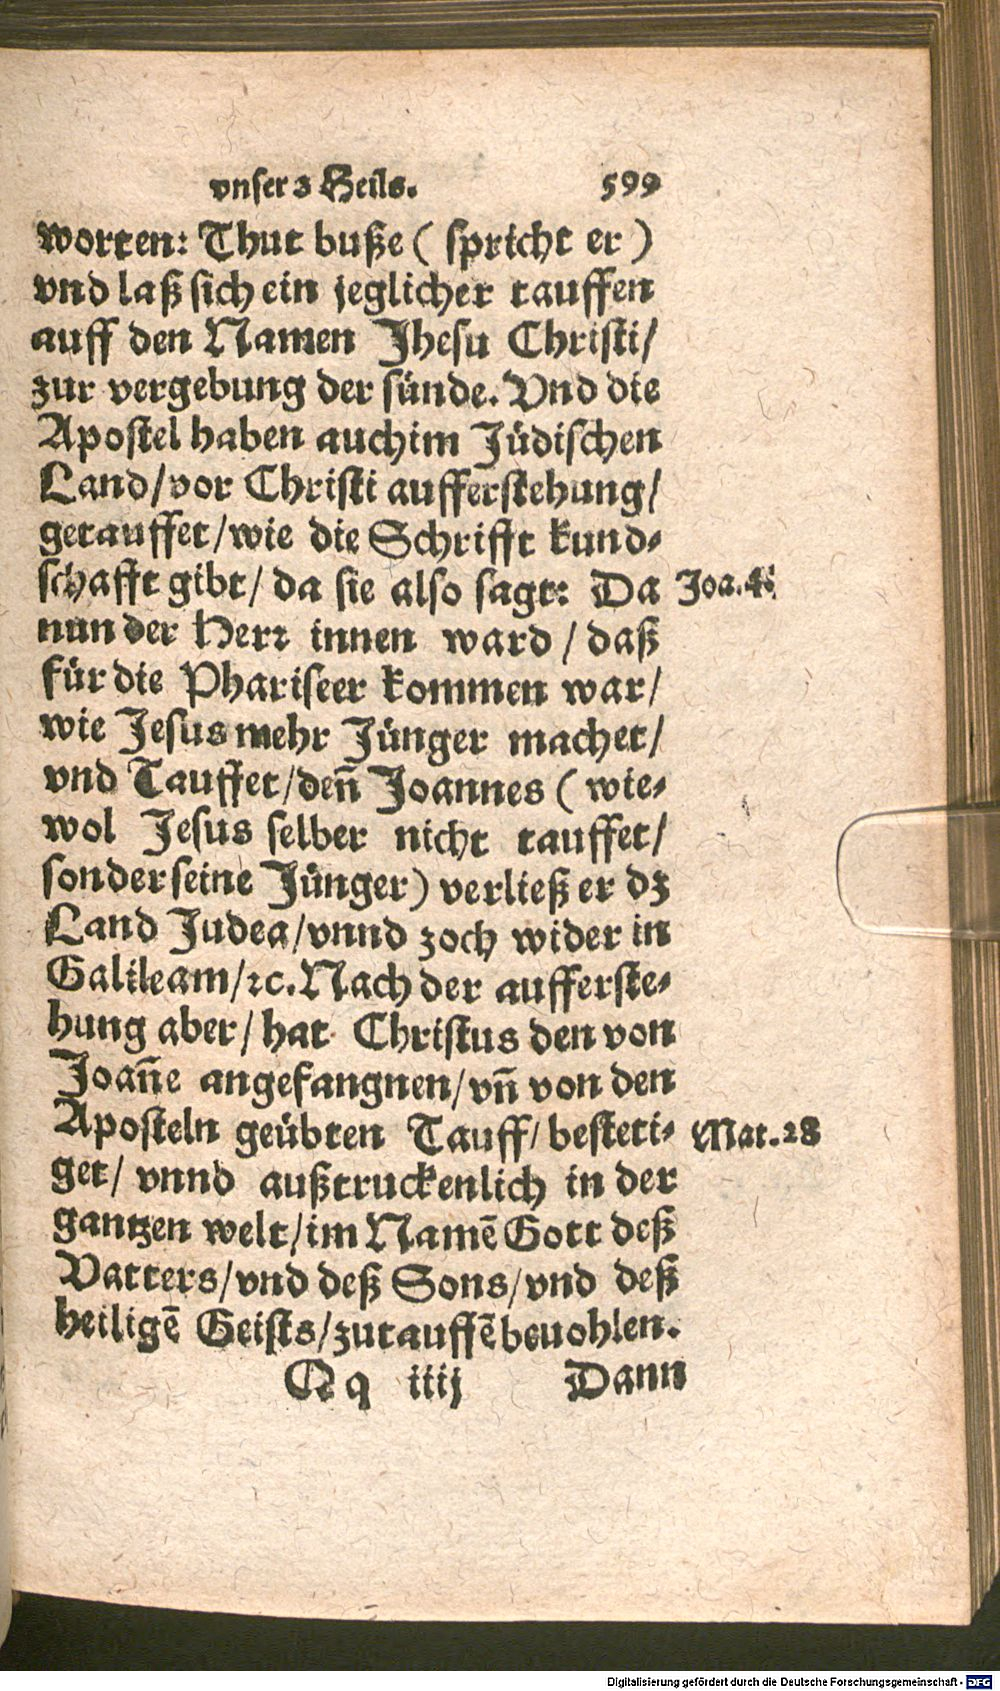 vnser 3 Heils. 599
worten: Thut buße ( spricht er )
vnd laß sich ein jeglicher tauffen
auff den Namen Jhesu Christi/
zur vergebung der sünde. Vnd die
Apostel haben auch im Jüdischen
Land/vor Christi aufferstehung/
getauffet/wie die Schrifft kund-
schafft gibt/ da sie also sagt: Da Joa. 4.
nun der Herr innen ward / daß
für die Phariseer kommen war/
wie Jesus mehr Jünger machet/
vnd Tauffet/deñ Joannes ( wie-
wol Jesus selber nicht tauffet/
sonder seine Jünger) verließ er dz
Land Judea/vnnd zoch wider in
Galileam/ꝛc. Nach der aufferste-
hung aber/ hat Christus den von
Joañe angefangnen/vñ von den
Aposteln geübten Tauff/ besteti- Mat. 28
get/ vnnd außtruckenlich in der
gantzen welt/im Namẽ Gott deß
Vatters/vnd deß Sons/vnd deß
heiligẽ Geists/zutauffẽ beuohlen.
Qq iiij Dann
Digitalisierung gefördert durch die Deutsche Forschungsgemeinschaft - DFG